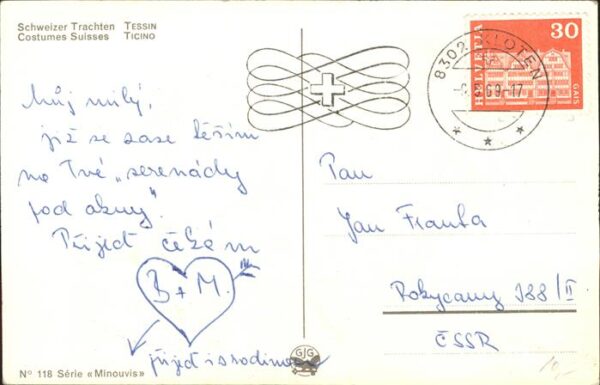 Schweizer Trachten TESSIN
Costumes Suisses TICINO
Můj milý,
již se zase těším
na Tvé „serenády
pod okny".
Přijeď čeká m
B + M.
přijeď i s rodinou
Nº 118 Série «Minouvis»
GJG
8302 KLOTEN
69-17
HELVETIA
30
GAIS
Pan
Jan Franta
Rokycany 188/II
ČSSR